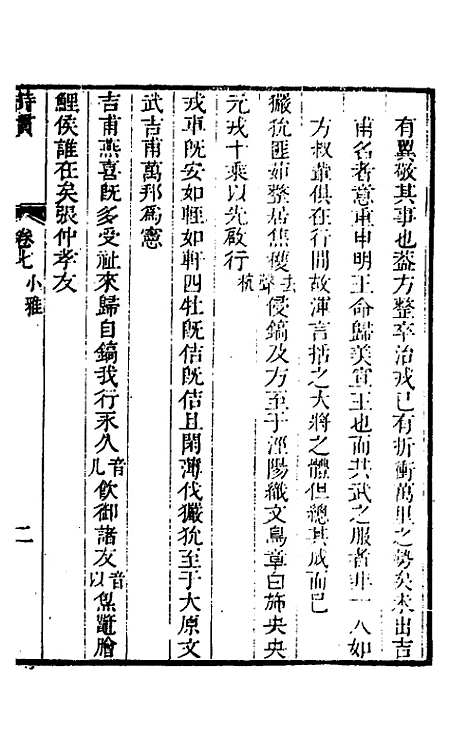 有翼敬其事也蓋方整卒治戎已有折衝萬里之勢矣未出吉
甫名者意重申明王命歸美宣王也而共武之服者非一人如
方叔輩俱在行間故渾言括之大將之體但總其成而已
玁狁匪茹整居焦穫去聲侵鎬及方至于涇陽織文鳥章白斾央央
元戎十乘以先啟行杭
戎車既安如輊如軒四牡既佶既佶且閑薄伐玁狁至于大原文
武吉甫萬邦爲憲
吉甫燕喜既多受祉來歸自鎬我行永久音几飲御諸友音以炰鼈膾
鯉侯誰在矣張仲孝友
詩貫
卷七 小雅
二